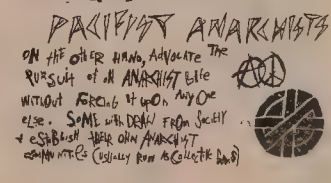 PACIFIST ANARCHISTS
ON tHE OtHER HAND, AdvOCAtE The
PURSUit of AN ANARCHIST Life
WitHOUT FORCING it UPON ANY ONE
else. SOME withDRAW FROM Society
+ eStABLISH tHEIR OWN ANARCHIST
COMMUNitIES (USUAlly RUN AS COllECtIVE